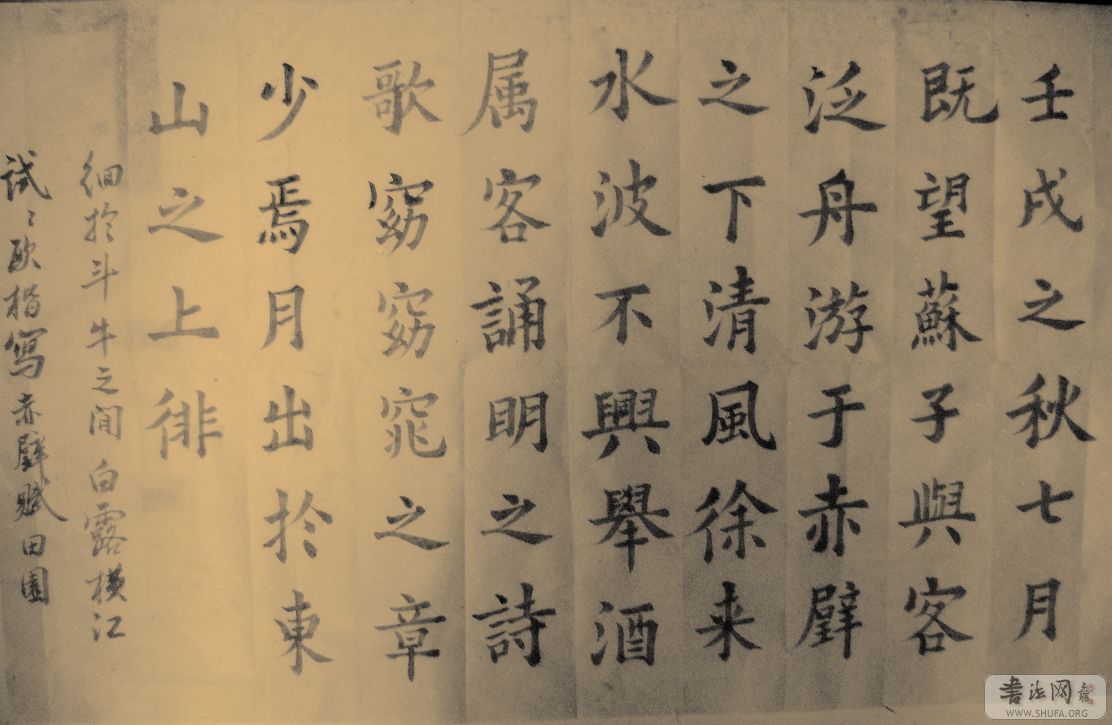 壬戌之秋七月
既望蘇子與客
泛舟游于赤壁
之下清風徐来
水波不興舉酒
属客誦明之詩
歌窈窈窕之章
少焉月出於東
山之上徘
徊於斗牛之间白露横江
试〻欧楷写赤壁赋田園
书法网
WWW.SHUFA.ORG